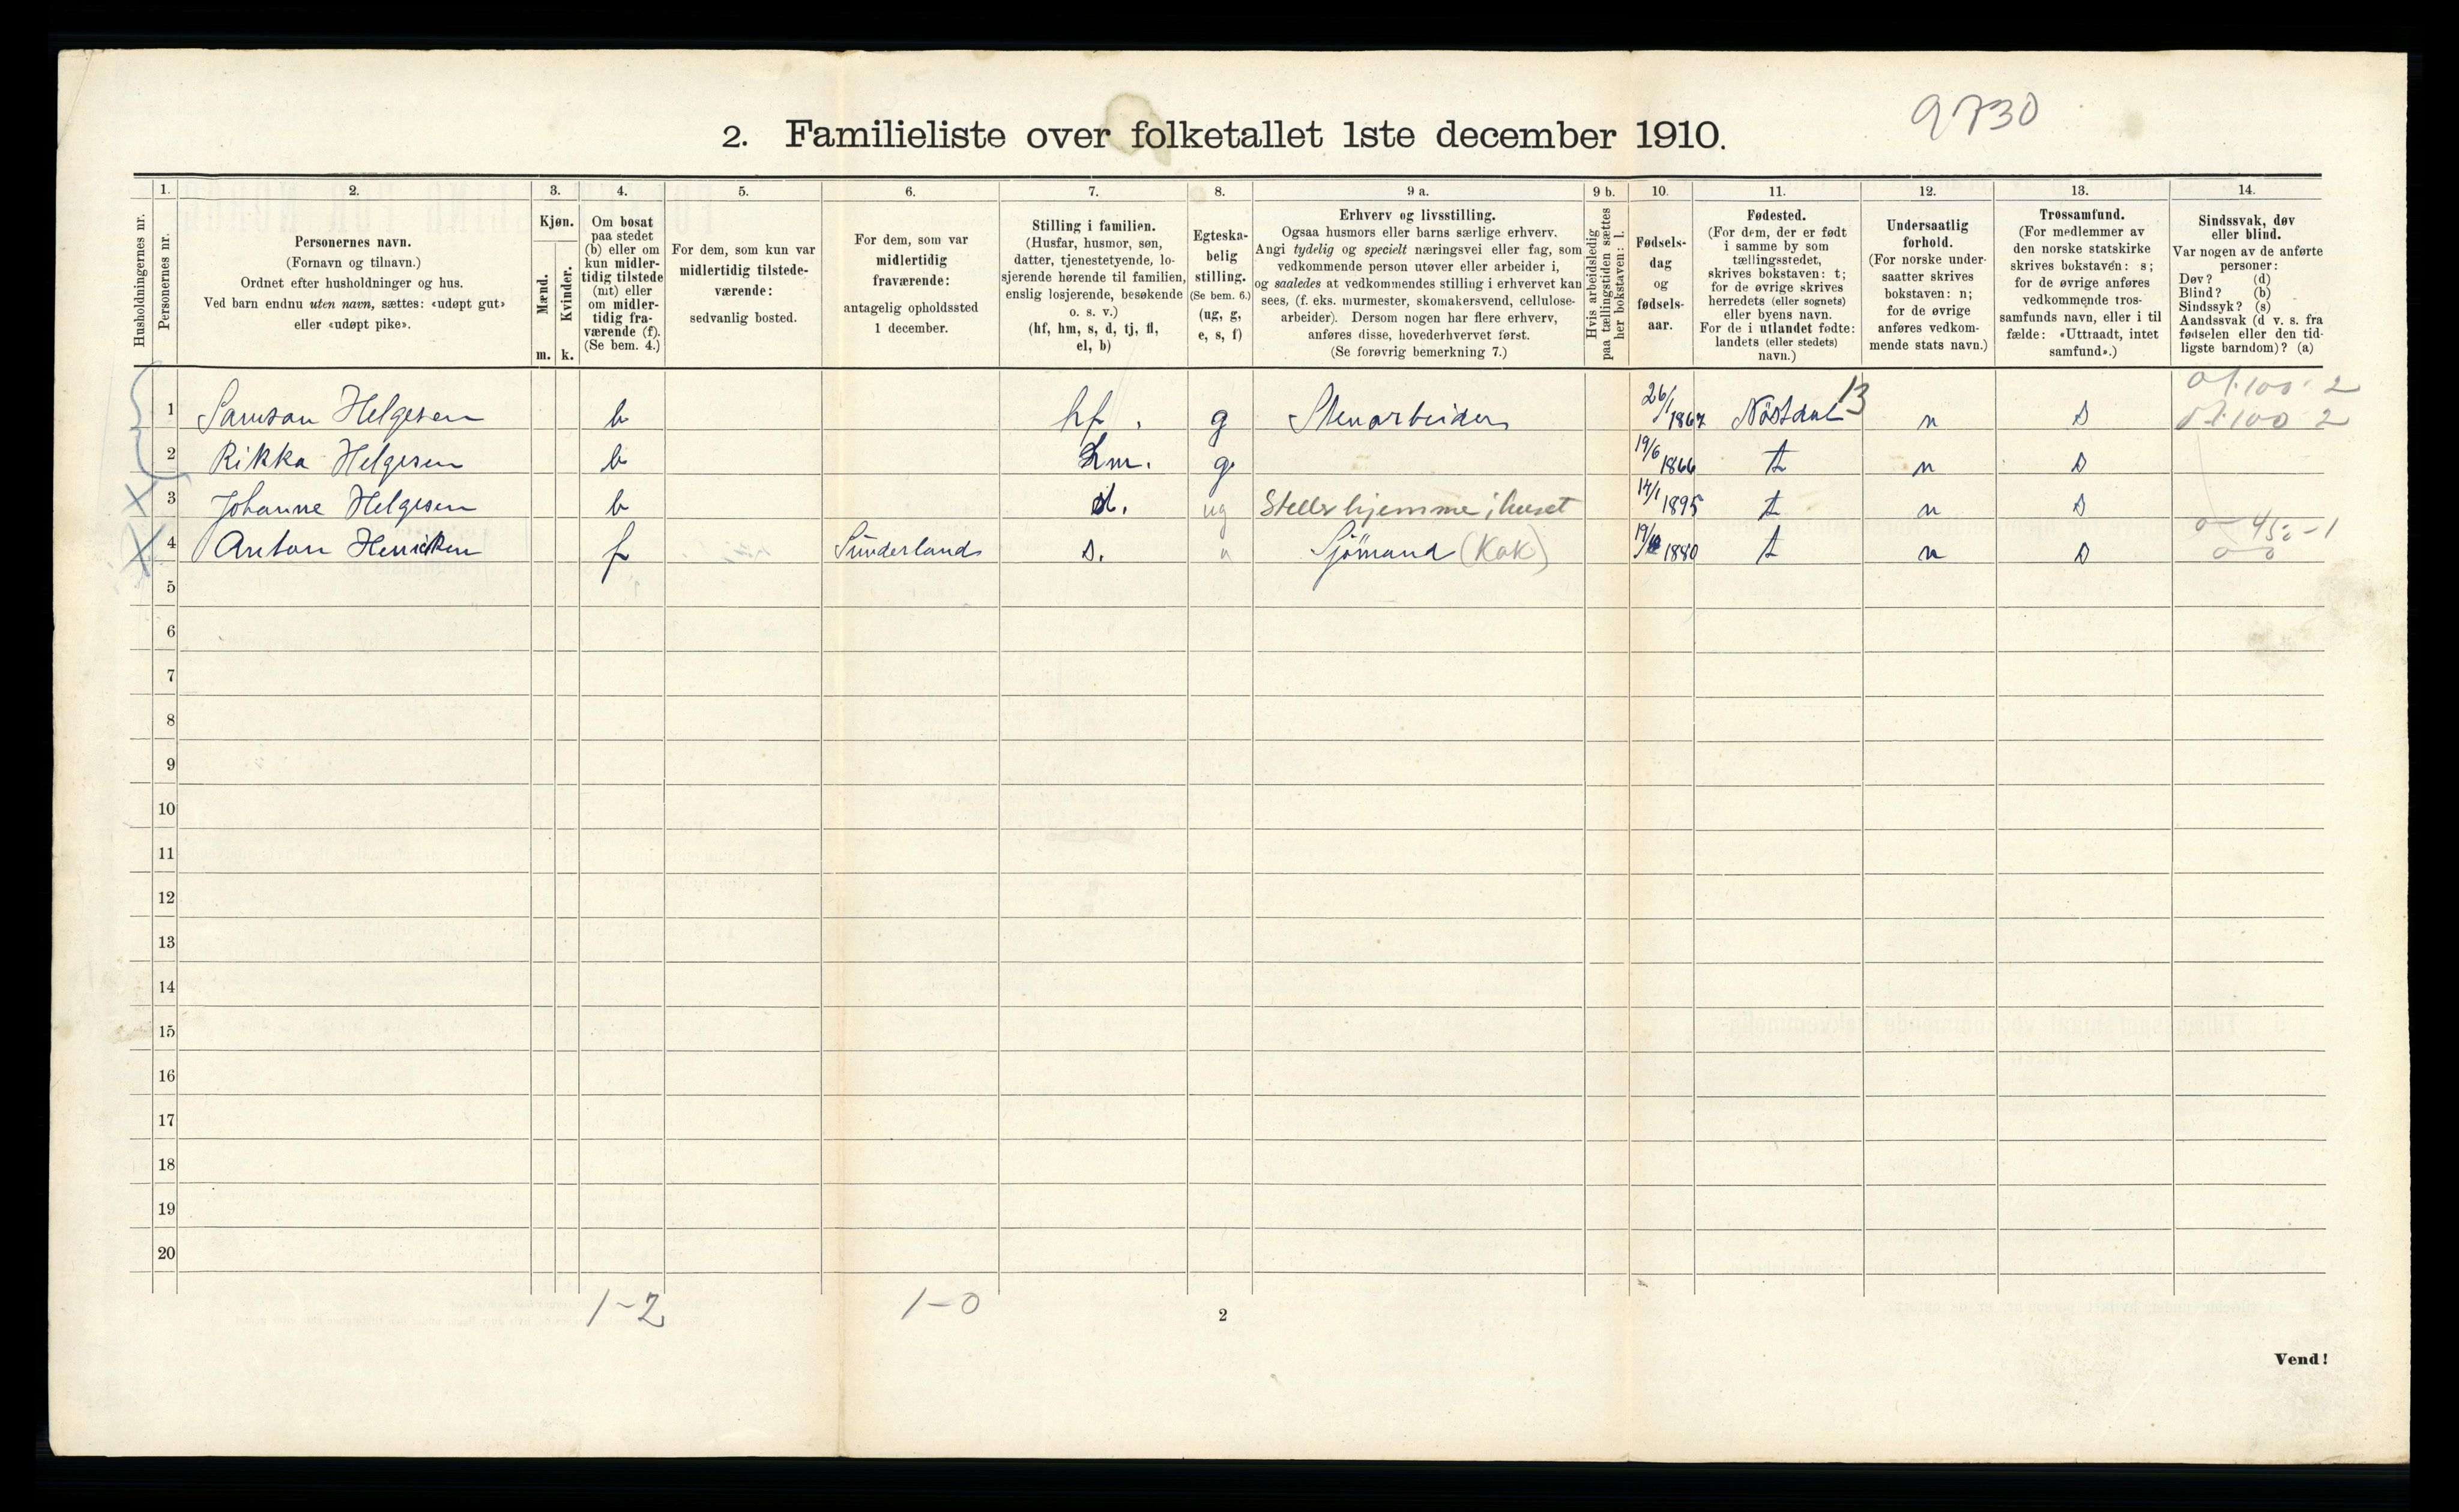 9730
2. Familieliste over folketallet 1ste december 1910.
1. 2. 3. 4. 5. 6. 7. 8. 9 a. 9 b. 10. 11. 12. 13. 14.
Husholdningernes nr.
Personernes nr.
Personernes navn.
(Fornavn og tilnavn.)
Ordnet efter husholdninger og hus.
Ved barn endnu uten navn, sættes: «udøpt gut»
eller «udøpt pike».
Kjøn.
Mænd.
Kvinder.
m. k.
Om bosat
paa stedet
(b) eller om
kun midler-
tidig tilstede
(mt) eller
om midler-
tidig fra-
værende (f).
(Se bem. 4.)
For dem, som kun var
midlertidig tilstede-
værende:
sedvanlig bosted.
For dem, som var
midlertidig
fraværende:
antagelig opholdssted
1 december.
Stilling i familien.
(Husfar, husmor, søn,
datter, tjenestetyende, lo-
sjerende hørende til familien,
enslig losjerende, besøkende
o. s. v.)
(hf, hm, s, d, tj, fl,
el, b)
Egteska-
belig
stilling.
(Se bem. 6.)
(ug, g,
e, s, f)
Erhverv og livsstilling.
Ogsaa husmors eller barns særlige erhverv.
Angi tydelig og specielt næringsvei eller fag, som
vedkommende person utøver eller arbeider i,
og saaledes at vedkommendes stilling i erhvervet kan
sees, (f. eks. murmester, skomakersvend, cellulose-
arbeider). Dersom nogen har flere erhverv,
anføres disse, hovederhvervet først.
(Se forøvrig bemerkning 7.)
Hvis arbeidsledig
paa tællingstiden sættes
her bokstaven: l.
Fødsels-
dag
og
fødsels-
aar.
Fødested.
(For dem, der er født
i samme by som
tællingsstedet,
skrives bokstaven: t;
for de øvrige skrives
herredets (eller sognets)
eller byens navn.
For de i utlandet fødte:
landets (eller stedets)
navn.)
Undersaatlig
forhold.
(For norske under-
saatter skrives
bokstaven: n;
for de øvrige
anføres vedkom-
mende stats navn.)
Trossamfund.
(For medlemmer av
den norske statskirke
skrives bokstaven: s;
for de øvrige anføres
vedkommende tros-
samfunds navn, eller i til
fælde: «Uttraadt, intet
samfund».)
Sindssvak, døv
eller blind.
Var nogen av de anførte
personer:
Døv? (d)
Blind? (b)
Sindssyk? (s)
Aandssvak (d v. s. fra
fødselen eller den tid-
ligste barndom)? (a)
1 Samson Helgesen b hf. g Stenarbeider 26/1 1867 Nøstdal 13 n s
2 Rikka Helgesen b hm. g 19/6 1866 t n s
3 Johanne Helgesen b d. ug Steller hjemme i huset 14/1 1895 t n s
4 Anton Henriksen f Sünderland s. Sjömand (Kok) 1880 t n s
5
6
7
8
9
10
11
12
13
14
15
16
17
18
19
20
1-2 1-0
2
Vend!